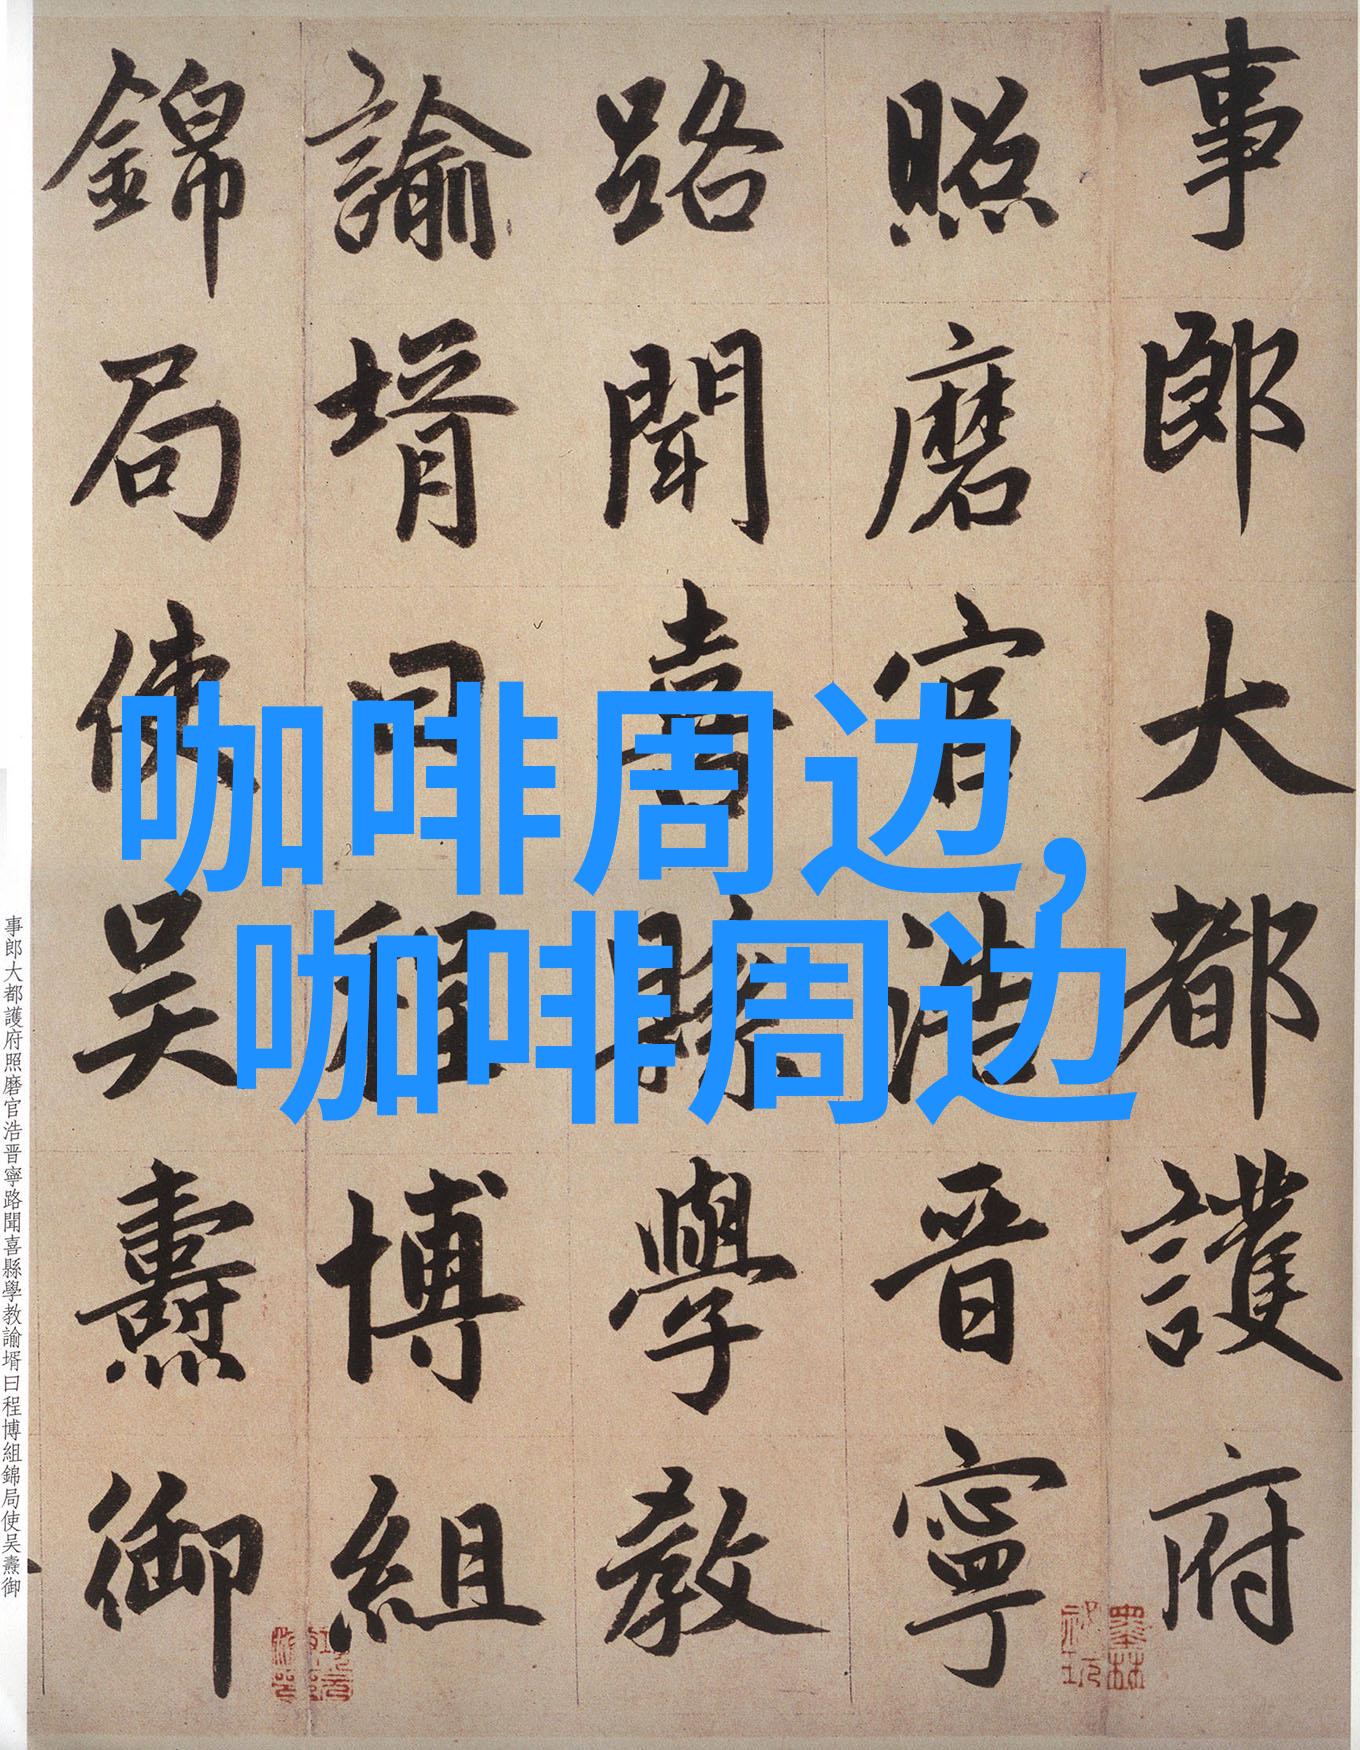 咖啡周边,
咖啡周边
事郎大都護府
照磨官浩晋寧
路聞喜縣學教
諭壻曰程博組
錦局使吴燾御
事郎大都護府照磨官浩晋寧路聞喜縣學教諭壻曰程博組錦局使吴燾御